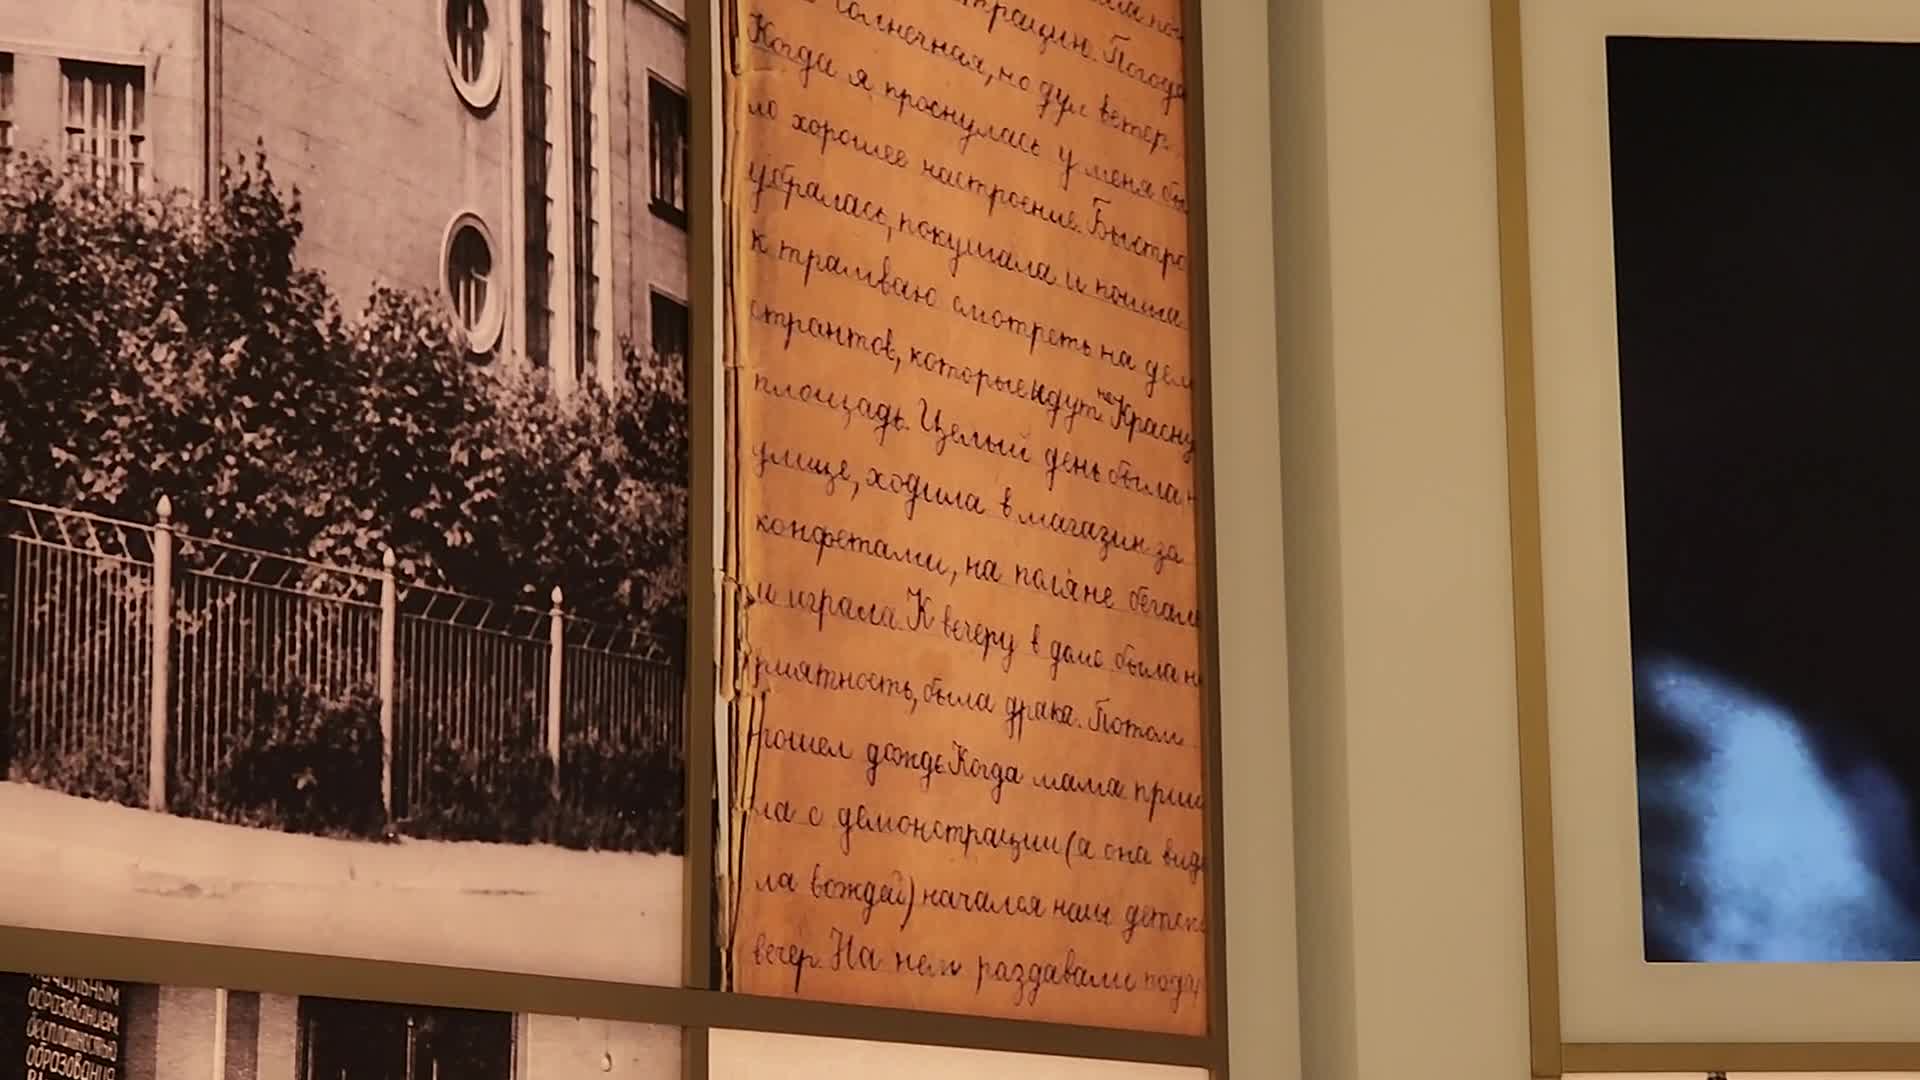 трации. Погода
солнечная, но дул ветер.
Когда я проснулась у меня бы
ло хорошее настроение. Быстро
убралась, покушала и пошла
к трамваю смотреть на дем
странтов, которые идут на Красну
площадь. Целый день была н
улице, ходила в магазин за
конфетами, на поляне бегала
и играла. К вечеру в доме была н
приятность, была драка. Потом
прошел дождь Когда мама приш
ла с демонстрации (а она виде
ла вождей) начался наш детск
вечер. На нем раздавали пода
чальным
образованием,
бесплатностью
образования